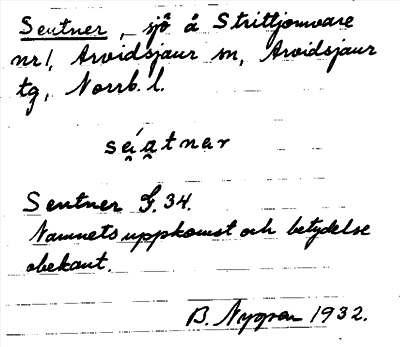 Seutner, sjö å Strittjomvare
nr 1, Arvidsjaur sn, Arvidsjaur
tg, Norrb. l.
séatnar
Seutner G. 34.
Namnets uppkomst och betydelse
obekant.
B. Nygren 1932.